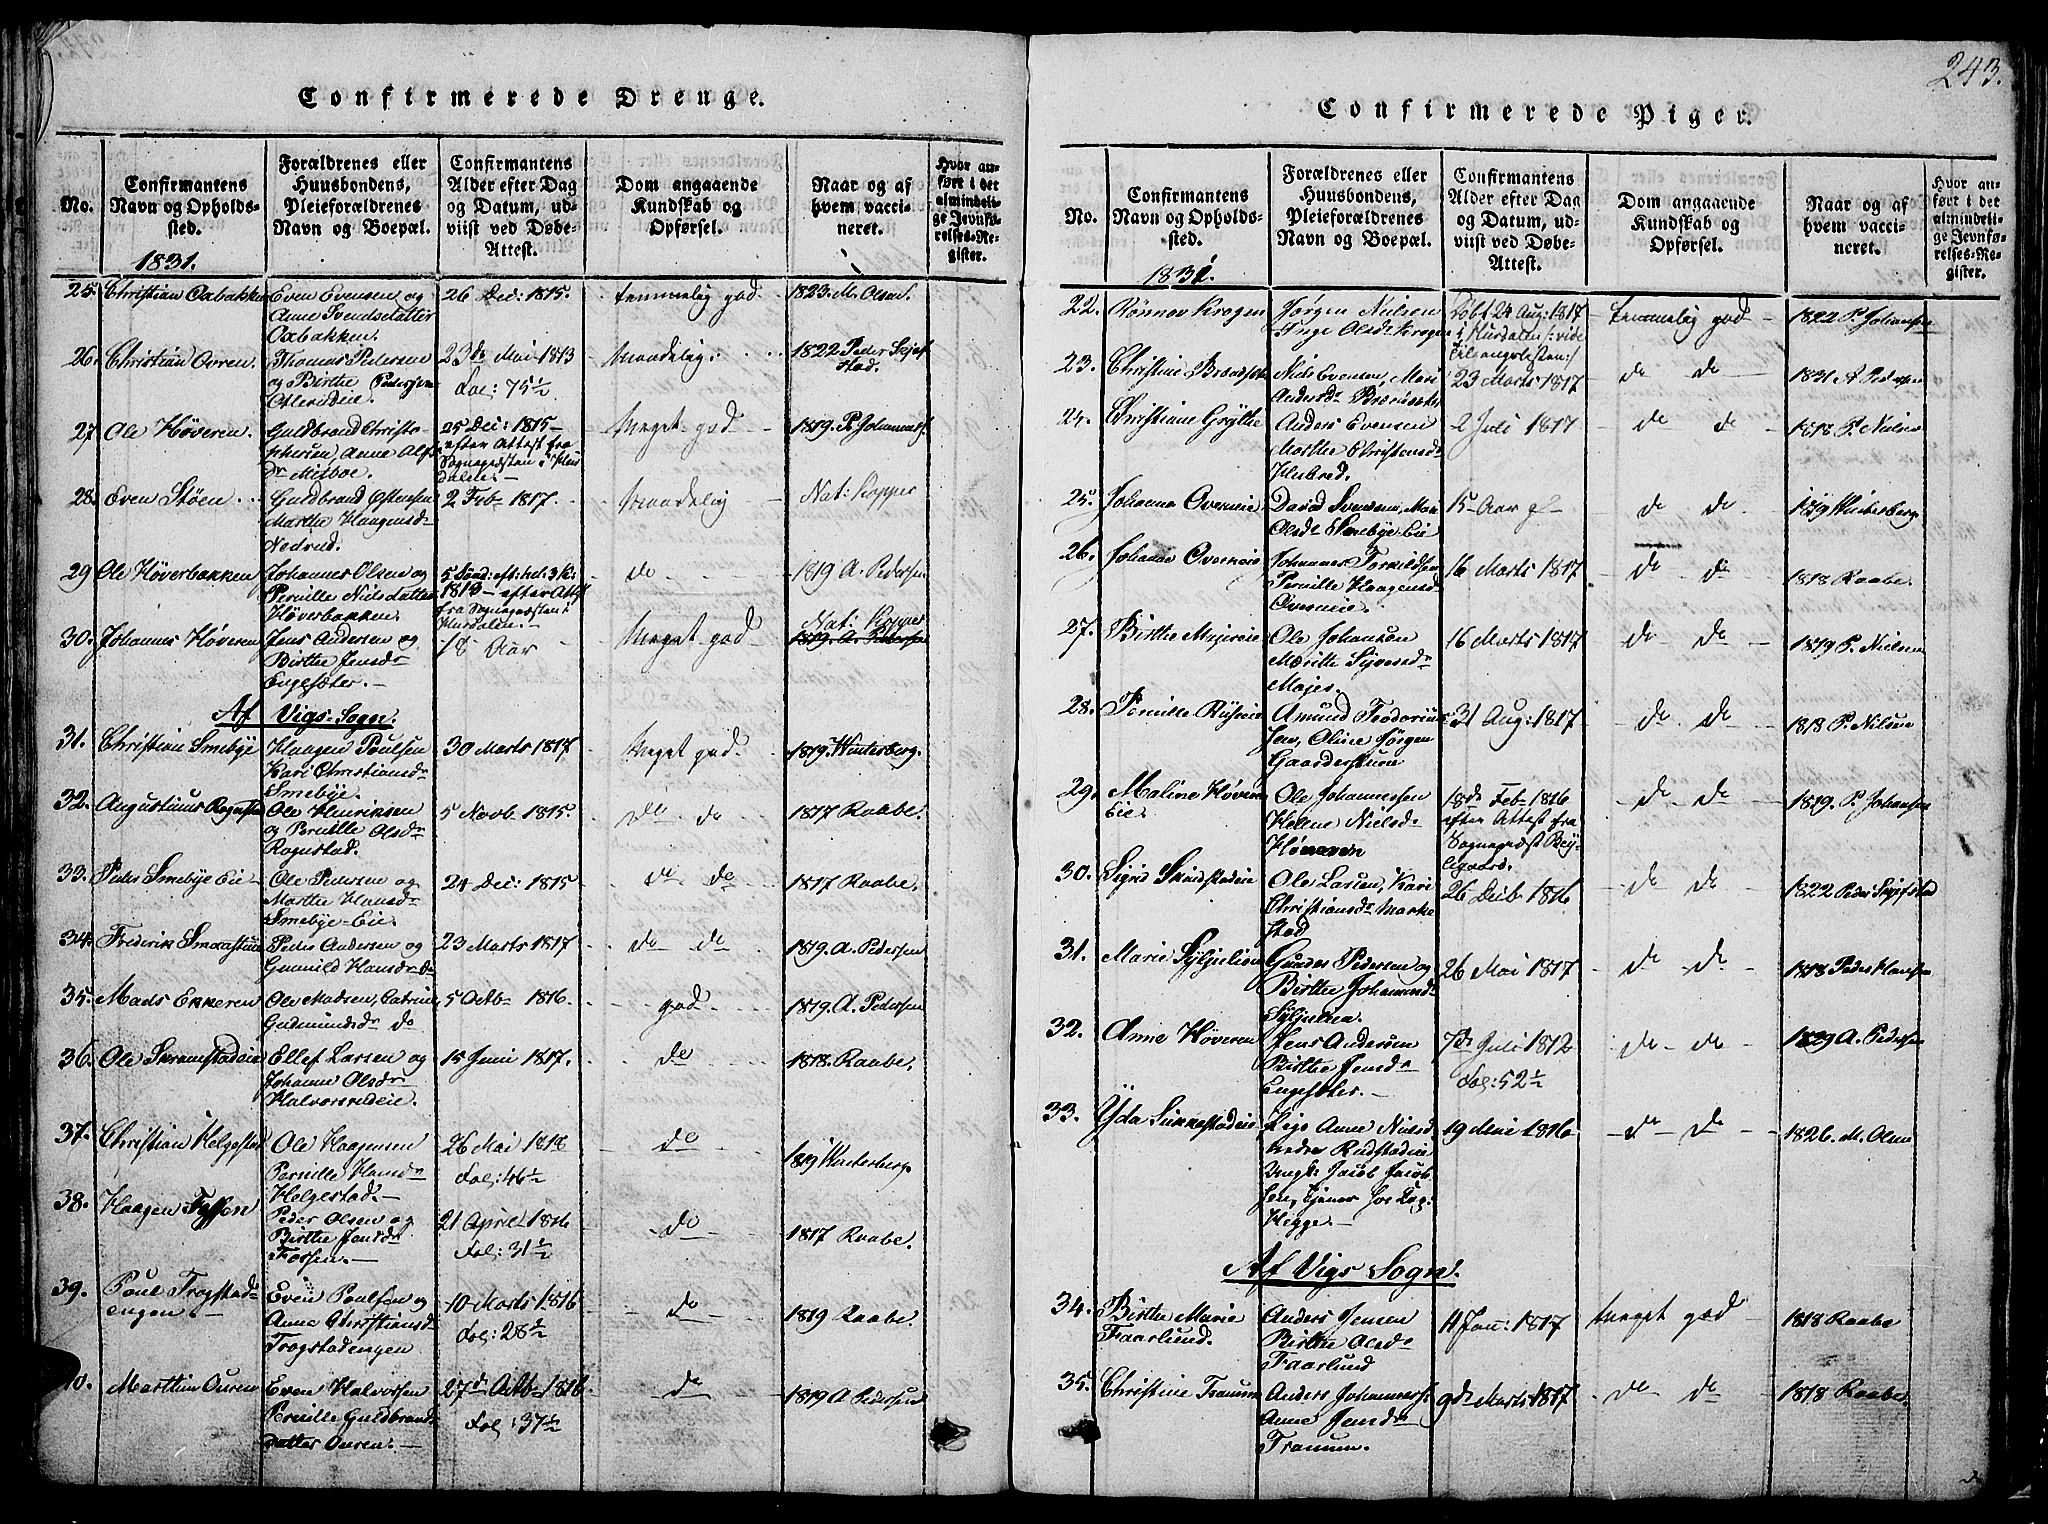 243.
Confirmerede Drenge.
No.
Confirmantens
Navn og Opholds-
sted.
1831.
Forældrenes eller
Huusbondens,
Pleieforældrenes
Navn og Boepæl.
Confirmantens
Alder efter Dag
og Datum, ud-
viist ved Døbe-
Attest.
Dom angaaende
Kundskab og
Opførsel.
Naar og af
hvem vacci-
neret.
Hvor an-
ført i det
almindeli-
ge Jevnfø-
relses-Re-
gister.
25. Christian Oxbakken
Even Evensen og
Anne Svendsdatter
Oxbakken.
26 Dec: 1815.
temmelig god
1823. M. Olsen.
26. Christian Ovren.
Thomas Pedersen
og Birthe Pedersen
23de Mai 1813
Fol: 75½
maadelig.
1822 Peder Skjef
stad.
27. Ole Høveren.
Guldbrand Christo-
phersen, Anne Alfs
dr Mitboe.
25 Dec: 1815
efter Attest fra
Sognepræsten i Hur
dalen.
Meget god
1819. P. Johannes.
28. Even Støen
Guldbrand Østensen
Marthe Haagensdr
Nedrud.
2 Feb 1817.
maadelig
Nat: Kopper
29. Ole Høverbakken
Johannes Olsen og
Pernille Nielsdatter
Høverbakken.
5 Sønd: eft: hel: 3 K:
1816 - efter Attest
fra Sognepræsten i
Hurdalen.
do
1819 A. Pedersen
30. Johannes Høveren
Jens Andersen og
Birthe Jensdr
Engesæter.
18 Aar
Meget god
Nat: Kopper
1819. A. Pedersen
Af Vigs-Sogn.
31. Christian Smebye
Haagen Poulsen
Kari Christiansdr
Smebye.
30 Marts 1817
Meget god
1819. Winterberg.
32. Augustinus Rognstad
Ole Henriksen
og Pernille Olsdr
Rognstad.
5 Novb 1815.
do do
1817 Raabe.
33. Peder Smebye Eie
Ole Pedersen og
Marthe Hansdr
Smebye-Eie.
24 Dec: 1815
do do
1817 Raabe.
34. Frederik Smerastuen
Peder Andersen og
Gunnild Hansdr do
23 Marts 1817
do do
1819. A. Pedersen
35. Mads Ekkeren
Ole Madsen, Catrine
Gudmundsdr do
5 Octb 1816.
god
1819. A. Pedersen
36. Ole Skramstadeie
Ellef Larsen og
Johanne Olsdr
Halvorsrudeie.
15 Juni 1817.
do
1818. Raabe.
37. Christian Helgestad
Ole Haagensen
Pernille Hansdr
Helgestad.
26 Mai 1816
Fol: 46½
do
1819 Winterberg.
38. Haagen Fossen
Peder Olsen og
Birthe Jensdr
Fossen.
21 April 1816
Fol: 31½
do
1817 Raabe.
39. Poul Trogstad-
engen
Even Poulsen og
Anne Christiansdr
Trogstadengen
10 Marts 1816
Fol: 28½
do
1819 Raabe.
40. Marthin Ouren
Even Halvorsen
Pernille Guldbrands
datter Ouren.
27de Octb 1816
Fol: 37½
do
1819 A Pedersen
Confirmerede Piger.
No.
Confirmantens
Navn og Opholds-
sted.
1831.
Forældrenes eller
Huusbondens,
Pleieforældrenes
Navn og Boepæl.
Confirmantens
Alder efter Dag
og Datum, ud-
viist ved Døbe-
Attest.
Dom angaaende
Kundskab og
Opførsel.
Naar og af
hvem vacci-
neret.
Hvor an-
ført i det
almindeli-
ge Jevnfø-
relses-Re-
gister.
22. Rönnov Krogen
Jørgen Nielsen
Inge Olsdr Krogen
Døbt 24 Aug: 1817
i Hurdalen /: vide
Tilgangslisten :/
temmelig god
1822 P. Johansen
23. Christine Brændsæter
Niels Evensen, Mari
Andersdr Brændsæter
23 Marts 1817
do do
1831 A Pedersen
24. Christiane Grythe
Anders Evensen
Marthe Christensdr
2 Juli 1817
do do
1818 P. Nielsen
25. Johanne Overneie
David Svendsen, Mari
Olsdr Smebye Eie
15 Aar gl
do do
1819 Winterberg
26. Johanne Overneie
Johannes Torkildsen
Pernille Haagensdr
Overneie.
16 Marts 1817
do do
1818 Raabe.
27. Birthe Majereie
Ole Johansen
Marithe Syversdr
Majer.
16 Marts 1817
do do
1819 P. Nielsen
28. Pernille
Amund Frederich
sen, Oline Jörgen
Gaarderstuen
31 Aug: 1817
do do
1818 P. Nilsen
29. Maline Høveren
Eie.
Ole Johannessen
Helene Nielsdr
Høveren
18de Feb 1816
efter Attest fra
Sognepræst Bey-
egaard.
do do
1819. P. Johansen
30. Sigrid Skindstadeie
Ole Larsen, Kari
Christiansdr Marke
stad
26 Decb 1816
do do
1822 Peder Skjefstad
31. Marie Syljulien
Gunder Pedersen og
Birthe Johannesdr
Syljulien.
26 Mai 1817
do do
1818 Peder Hansen
32. Anne Høveren
Jens Andersen
Birthe Jensdr
Engesæter.
7de Juli 1812
Fol: 52½
do do
1829 A. Pedersen
33. Yda Sukkestadeie
Pige Anne Nielsd
Rudstadeie
Ungk: Jacob Jacob
sen, tjener hos Lag:
Hegge.
19 Mai 1816
do do
1826. M. Olsen
Af Vigs Sogn.
34. Birthe Marie
Faarlund.
Anders Jensen
Birthe Olsdr
Faarlund
11 Jan: 1817
Meget god
1818 Raabe
35. Christine Tranum
Anders Johanness.
Anne Jensdr
Tranum.
9de Marts 1817
do do
1818 Raabe.